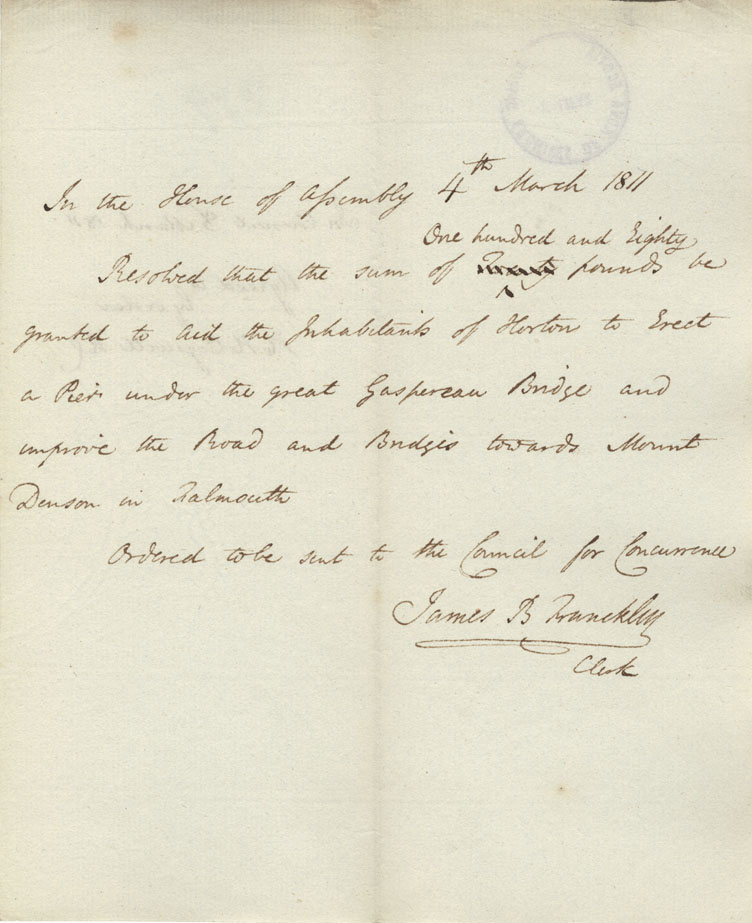 In the House of Assembly 4th March 1811
One hundred and Eighty
Resolved that the sum of pounds be
granted to aid the Inhabitants of Horton to Erect
a Pier under the great Gaspereau Bridge and
improve the Road and Bridges towards Mount
Denson in Falmouth
Ordered to be sent to the Council for Concurrence
James B Franckly
Clerk